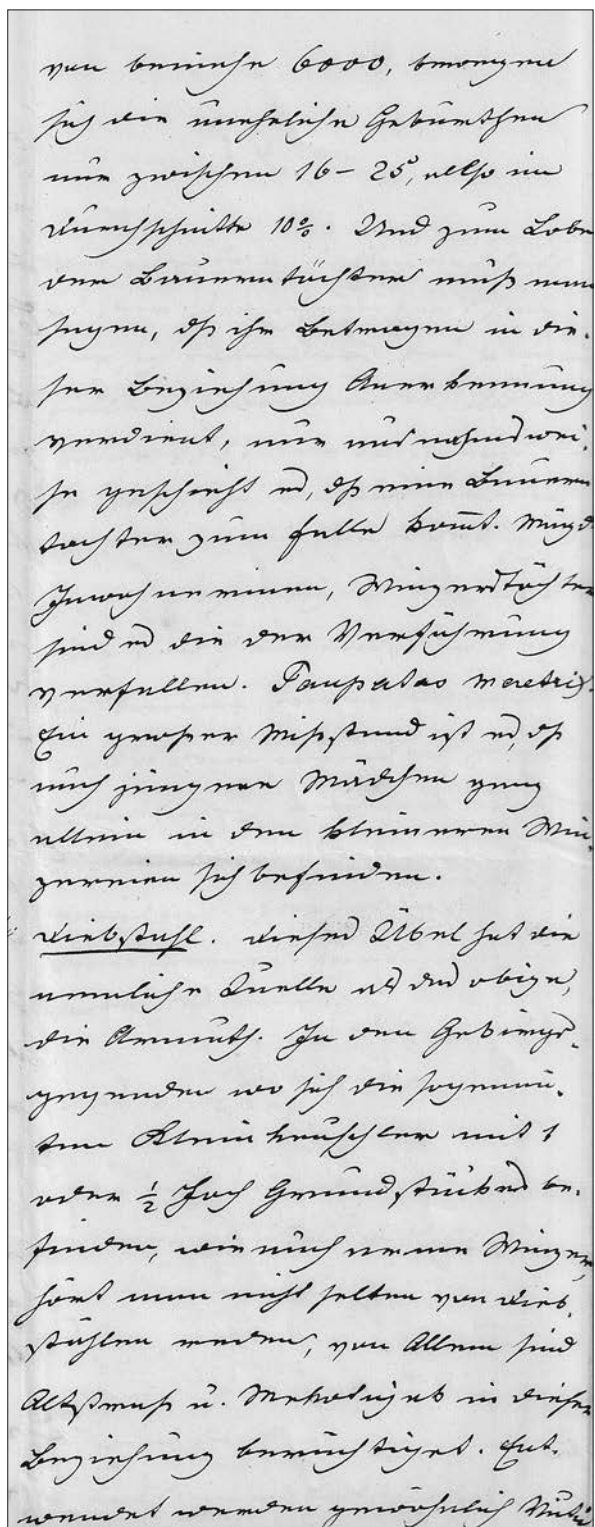 von beinahe 6000, bewegen
sich die uneheliche Geburthen
nur zwischen 16 – 25, allso im
Durchschnitte 10%. Und zum Lobe
der Bauerntöchter muß man
sagen, dß ihr Betragen in die-
ser Beziehung Anerkennung
verdient, nur ausnahmswei-
se geschieht es, dß eine Bauern
tochter zum Falle kommt. Mägde
Inwohnerinen, Winzerstöchter
sind es die der Verführung
verfallen. Paupertas meretrix.
Ein grosser Misstand ist es, dß
auch jüngere Mädchen ganz
allein in den kleineren Win-
zereien sich befinden.
Diebstahl. Dieses Übel hat die
nemliche Quelle als das obige,
die Armuth. In den Gebirgs-
gegenden wo sich die sogenan-
ten Kleinheuschler mit 1
oder ½ Joch Grundstückes be-
finden, wie auch arme Winzer,
hört man nicht selten von Dieb-
stählen reden, von Allem sind
u. in dieser
Beziehung berüchtiget. Ent-
wendet werden gewöhnlich